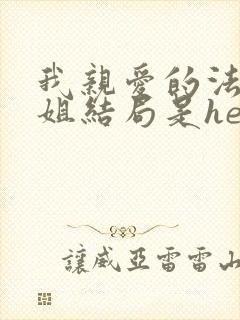 我親愛的法
姐結局是he
讓威亞雷雷山